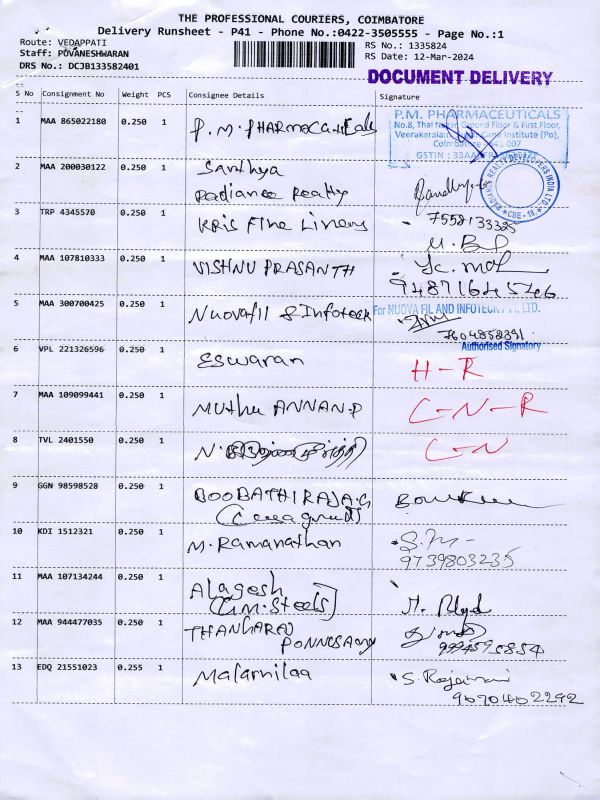 THE PROFESSIONAL COURIERS, COIMBATORE
Delivery Runsheet - P41 - Phone No.:0422-3505555 - Page No.:1
Route: VEDAPPATI RS No.: 1335824
Staff: POVANESHWARAN RS Date: 12-Mar-2024
DRS No.: DCJB133582401
DOCUMENT DELIVERY
S No Consignment No Weight PCS Consignee Details Signature
1 MAA 865022180 0.250 1 P.M. PHARMACeuticals
P.M. PHARMACEUTICALS
Ground Floor & First Floor,
Veerakeralam Cane Institute (Po),
Coimbatore 641 007
GSTIN : 33AA
2 MAA 200030122 0.250 1 Sandhya
Radiance Realty
RADIANCE REALTY DEVELOPERS INDIA LTD
CBE - 18
3 TRP 4345570 0.250 1 KRIS Fine Linens
4 MAA 107810333 0.250 1 VISHNU PRASANTH
5 MAA 300700425 0.250 1 Nuovafil & Infoteck
For NUOVA FIL AND INFOTECK PVT. LTD.
7604852391
Authorised Signatory
6 VPL 221326596 0.250 1 Eswaran H-R
7 MAA 109099441 0.250 1 Muthu ANNAN.P C-N-R
8 TVL 2401550 0.250 1 N. C-N
9 GGN 98598528 0.250 1 BOOBATHIRAJA.G
10 KDI 1512321 0.250 1 M. Ramanathan
9739803235
11 MAA 107134244 0.250 1 Alagesh
(C.M. Steels)
12 MAA 944477035 0.250 1 THANGARAJ
PONNUSAMY
13 EDQ 21551023 0.255 1 Malarnilaa S. Rajamani
9070402292